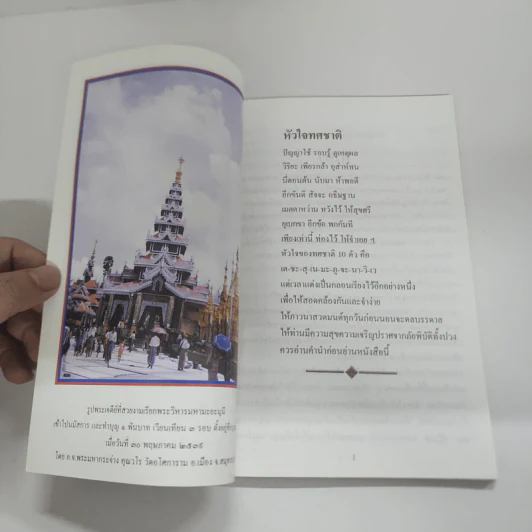 รูปพระเจดีย์ที่สวยงามเรียกพระวิหารมหามะยะมุนี
เข้าไปนมัสการ และทำบุญ ๑ พันบาท เวียนเทียน ๓ รอบ ตั้งอยู่ที่
เมื่อวันที่ ๓๐ พฤษภาคม ๒๕๓๙
โดย อ.จ.พระมหากระจ่าง คุณวโร วัดอโศการาม อ.เมือง จ.สมุท
หัวใจทศชาติ
ปัญญาใช้ รอบรู้ ถูกเหตุผล
วิริยะ เพียรกล้า อุส่าห์ทน
นี่ตอนต้น นับมา ห้าพอดี
อีกขันติ สัจจะ อธิษฐาน
เมตตาหว่าน หวังไว้ ให้สุขศรี
อุเบกขา อีกข้อ พอกันที
เพียงเท่านี้ ท่องไว้ ให้จำเอย ฯ
หัวใจของทศชาติ 10 ตัว คือ
เต-ชะ-สุ-เน-มะ-ภู-จะ-นา-วิ-เว
แต่เวลาแต่งเป็นกลอนเรียงไว้อีกอย่างหนึ่ง
เพื่อให้สอดคล้องกันและจำง่าย
ให้ภาวนาสวดมนต์ทุกวันก่อนนอนจะดลบรรดาล
ให้ท่านมีความสุขความเจริญปราศจากภัยพิบัติทั้งปวง
ควรอ่านคำนำก่อนอ่านหนังสือนี้
1